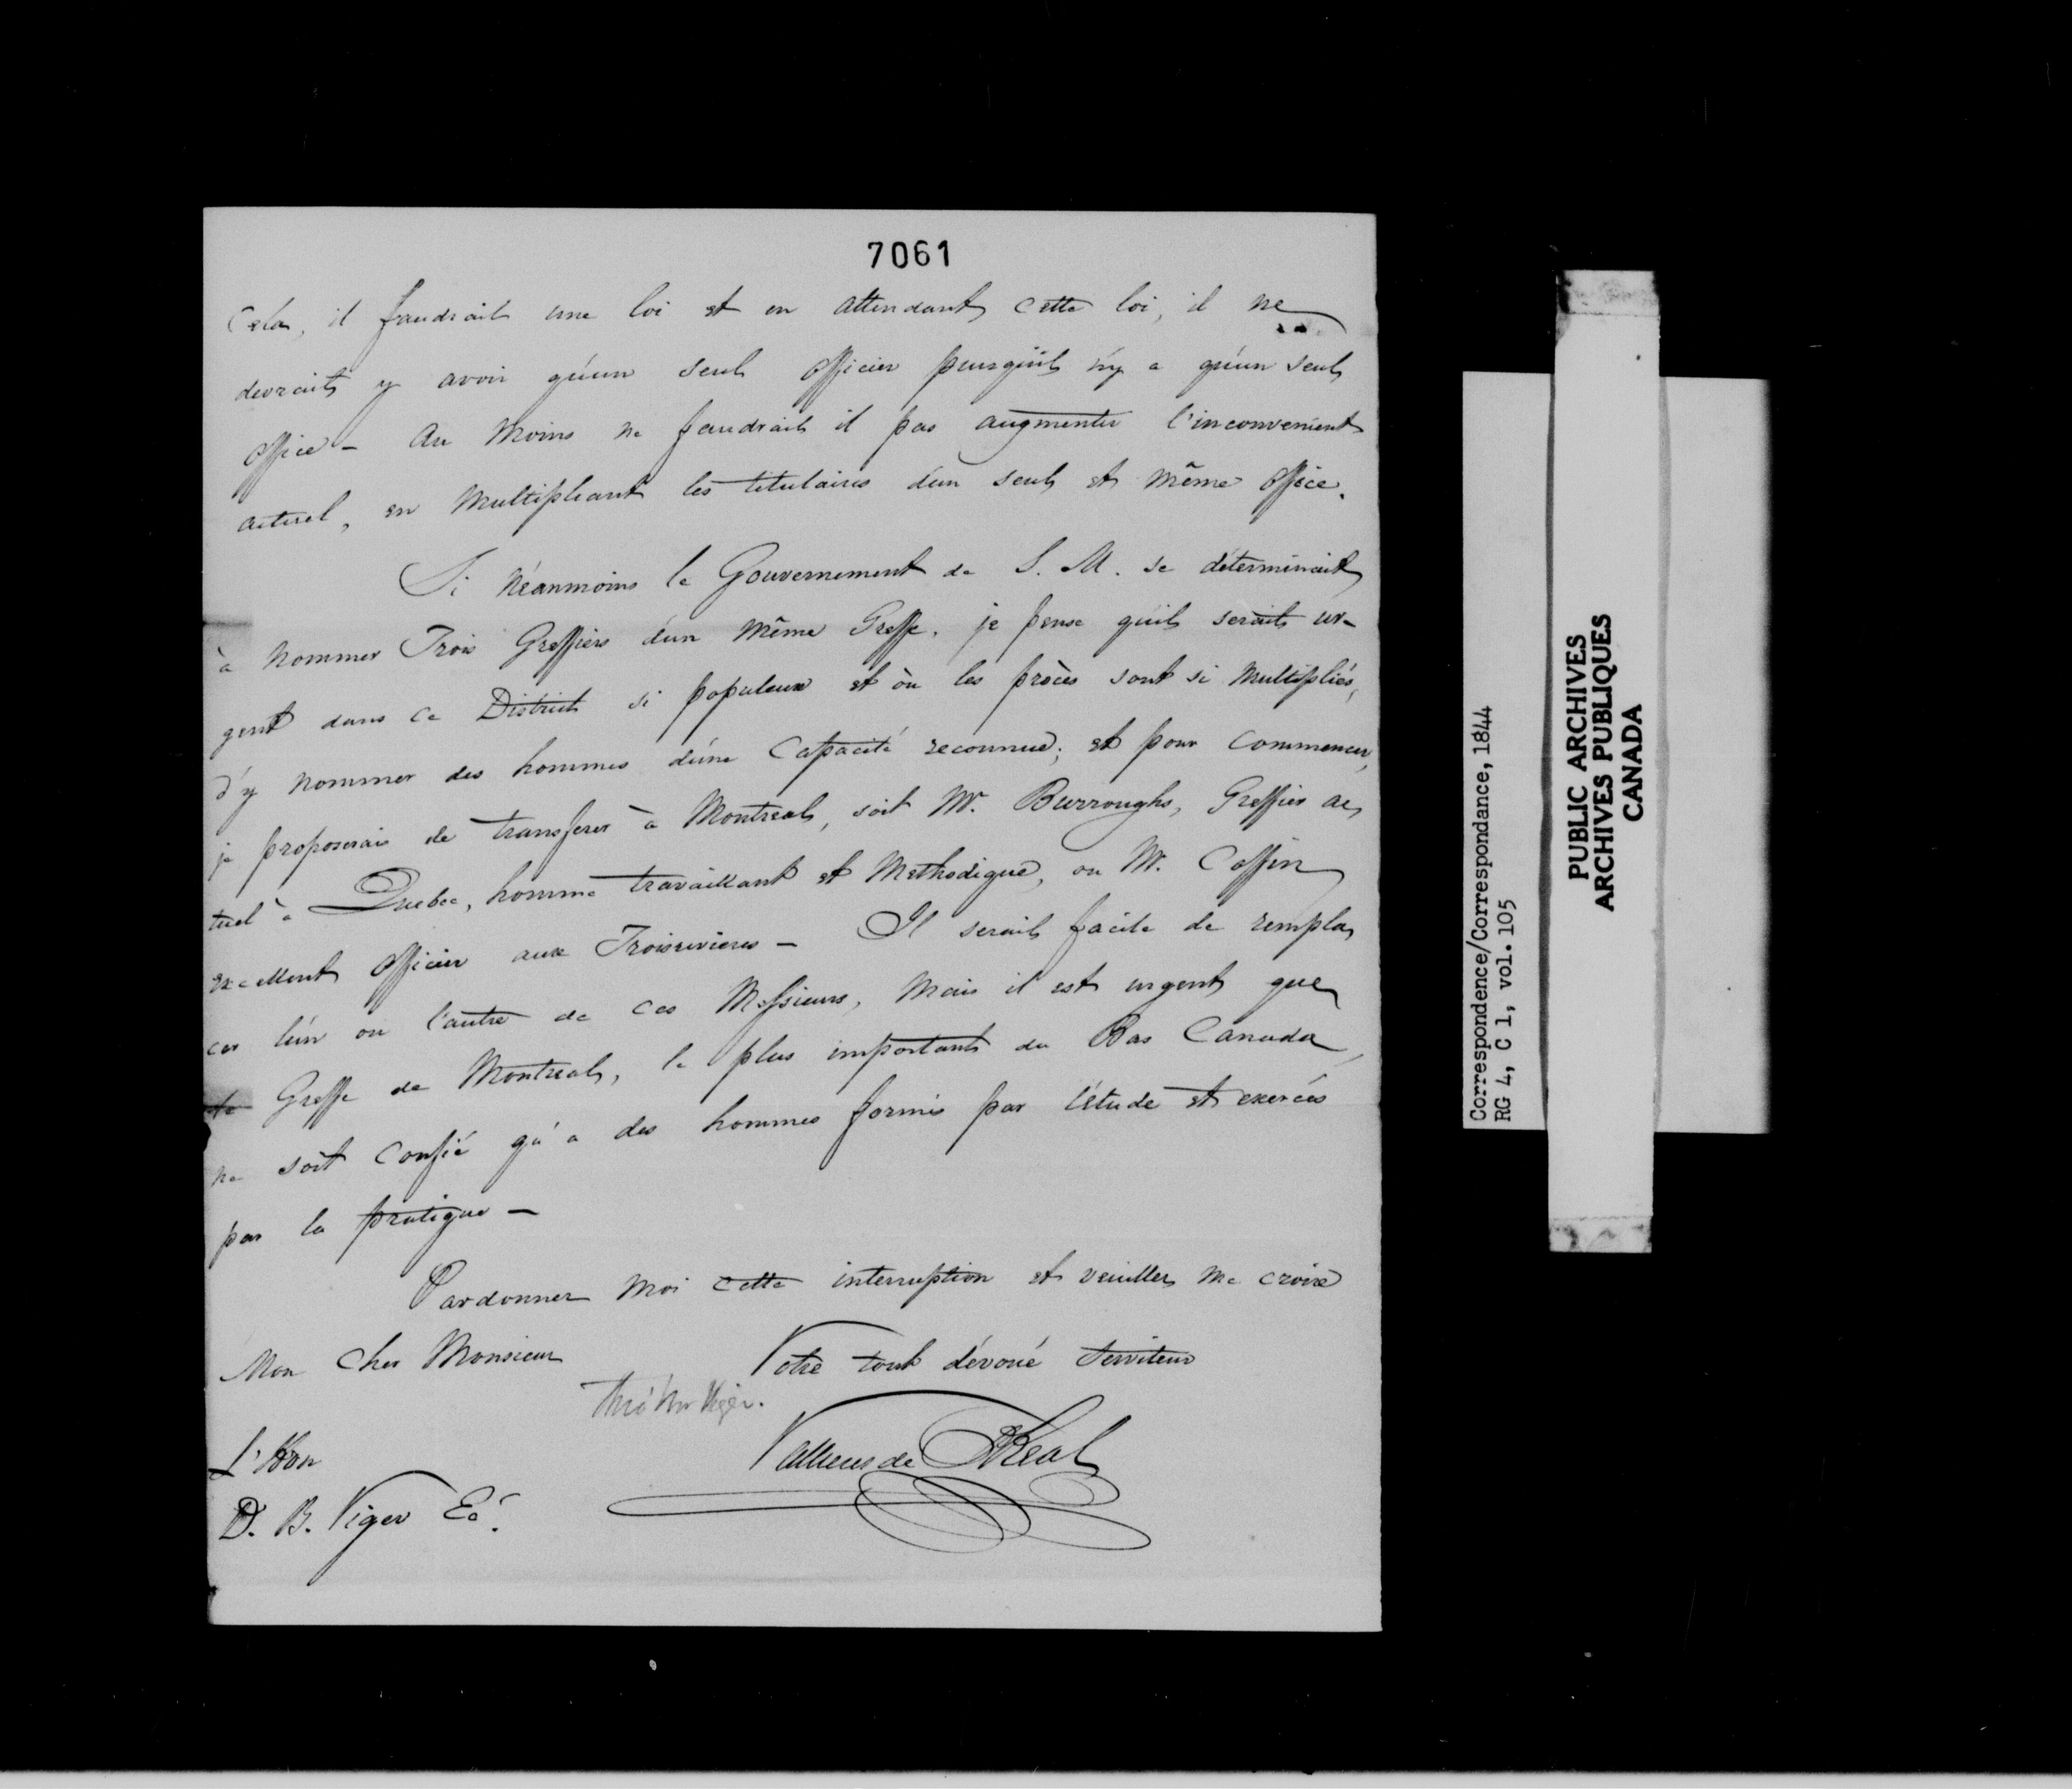 7061
Cela, il faudrait une loi et en attendant cette loi, il ne
devrait y avoir qu'un seul officier puisqu'il n'y a qu'un seul
office - Au moins ne faudrait il pas augmenter l'inconvenient
actuel, en multipliant les titulaires d'un seul et même office.
Si néanmoins le Gouvernement de S. M. se déterminait
à nommer Trois Greffiers d'un même Greffe, je pense qu'il serait ur-
gent dans ce District si populeux et où les procès sont si multipliés,
d'y nommer des hommes d'une capacité reconnue; et pour commencer,
je proposerais de transferer à Montreal, soit Mr. Burroughs, Greffier ac
tuel à Quebec, homme travaillant et methodique, ou Mr. Coffin
excellent officier aux Troisrivieres - Il serait facile de rempla
cer l'un ou l'autre de ces Messieurs, mais il est urgent que
le Greffe de Montreal, le plus important du Bas Canada,
ne soit confié qu'a des hommes formés par l'étude et exercés
par la pratique -
Pardonner moi cette interruption et veuillez me croire
Mon Cher Monsieur
Votre tout dévoué serviteur
Vallieres de St Real
L'Hon
D. B. Viger
Correspondence/Correspondance, 1844
RG 4, C 1, vol. 105
PUBLIC ARCHIVES
ARCHIVES PUBLIQUES
CANADA